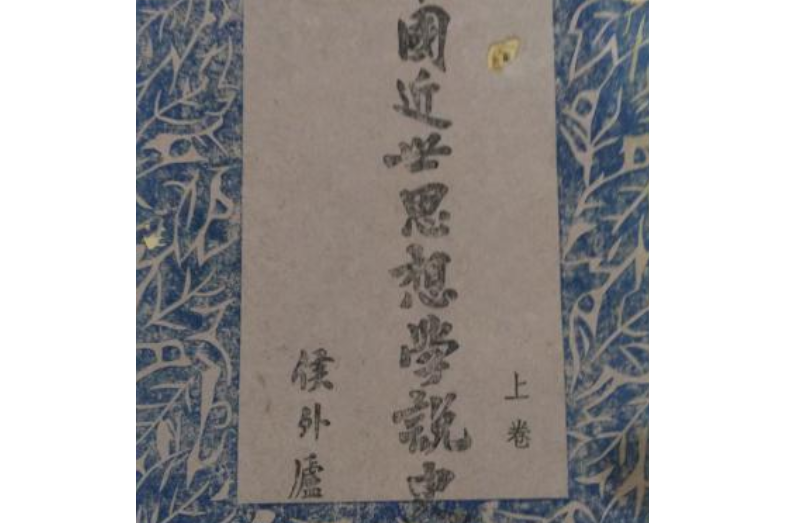 上卷
國近世思想学說史
侯外廬